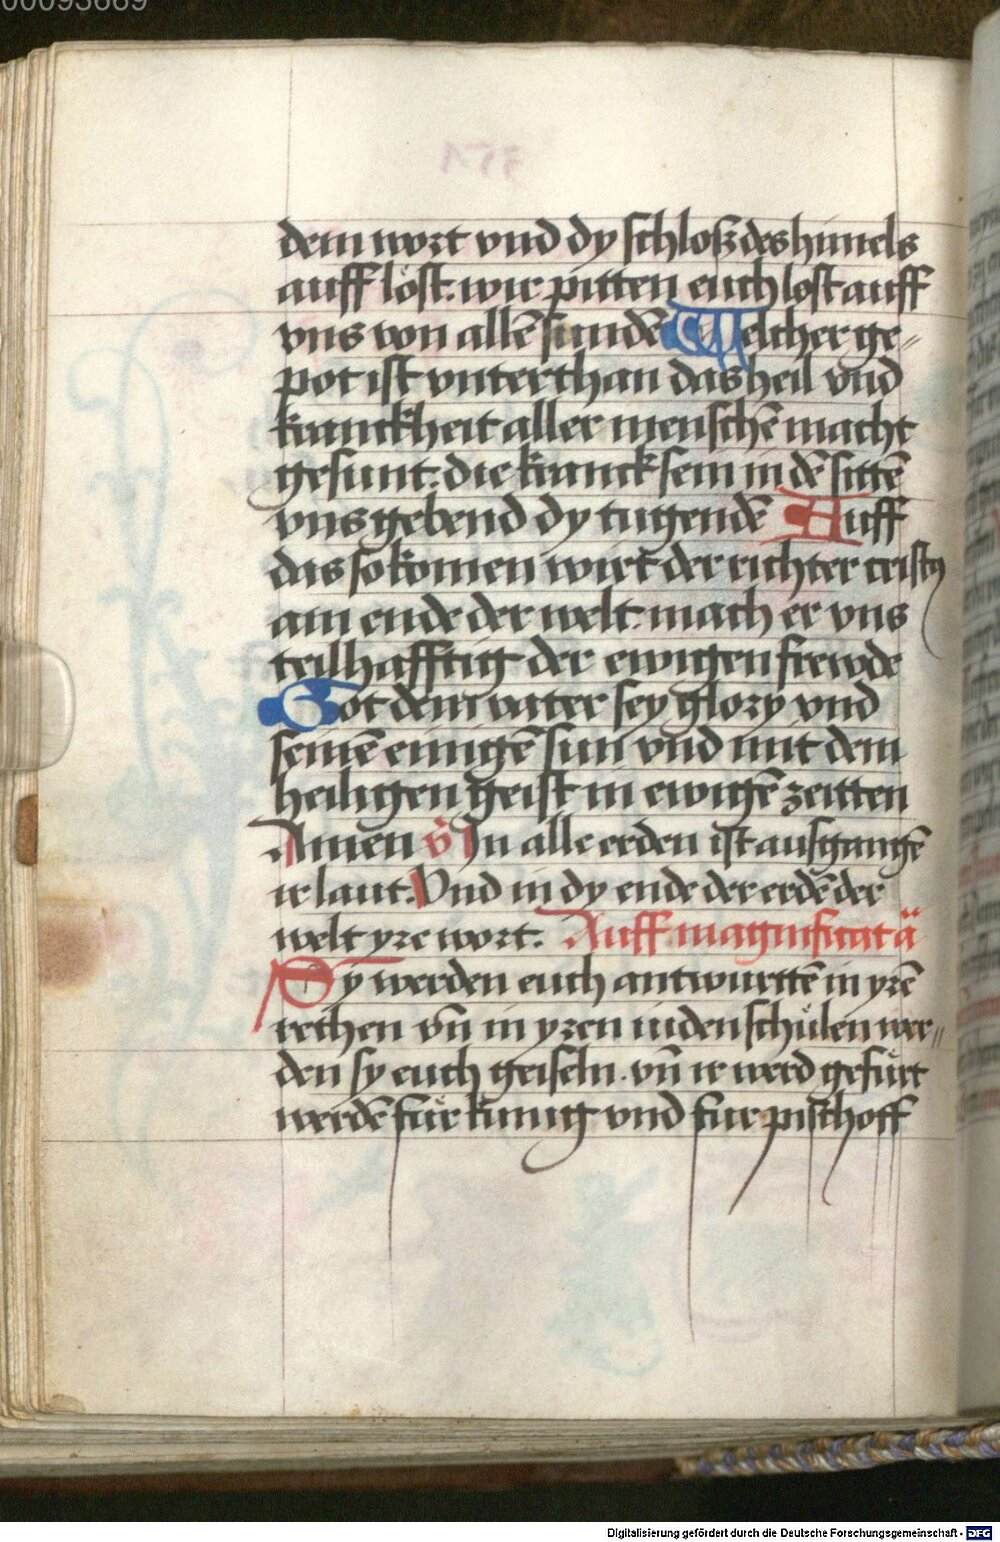 00093669
dem wort vnd dy schlosz des himels
auff löst. wir pitten euch lost auff
vns von allē sundē Welcher ge„
pot ist vnterthan das heil vnd
kranckheit aller menschē macht
gesunt. die kranck sein in dē sittē
vns gebend dy tugendē Auff
das so komen wirt der richter cristy
am ende der welt. mach er vns
teilhafftig der ewigen frewde
Got dem vatter sey glory vnd
seinē einigē sun vnd mit dem
heiligen geist in ewigē zeitten
Amen v̄ In alle erden ist ausgangē
ir laut. Vnd in dy ende der erdē der
welt yre wort. Auff magnificat ā
Sy werden euch antwurttē in yrē
rethen vn̄ in yren iudenschůlen wer„
den sy euch geiseln. vn̄ ir werd gefürt
werdē für kunig vnd fur pischoff
Digitalisierung gefördert durch die Deutsche Forschungsgemeinschaft - DFG